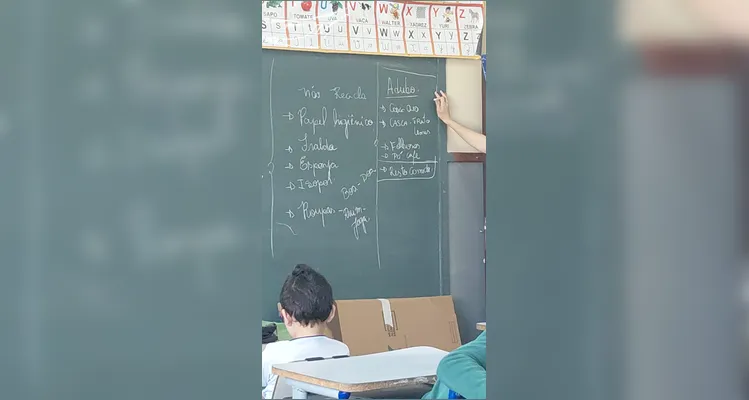 SAPO TOMATE VACA WALTER XADREZ YURI ZEBRA
S T U U V V W W X X Y Y Z Z
Não Recicla
Papel higiênico
Fralda
Esponja
Isopor
Roupas - Boa - Doa -
Ruim - Joga.
Adubo
Casca Ovo
CASCA - Fruta
Folhas
Pó café
Resto Comida